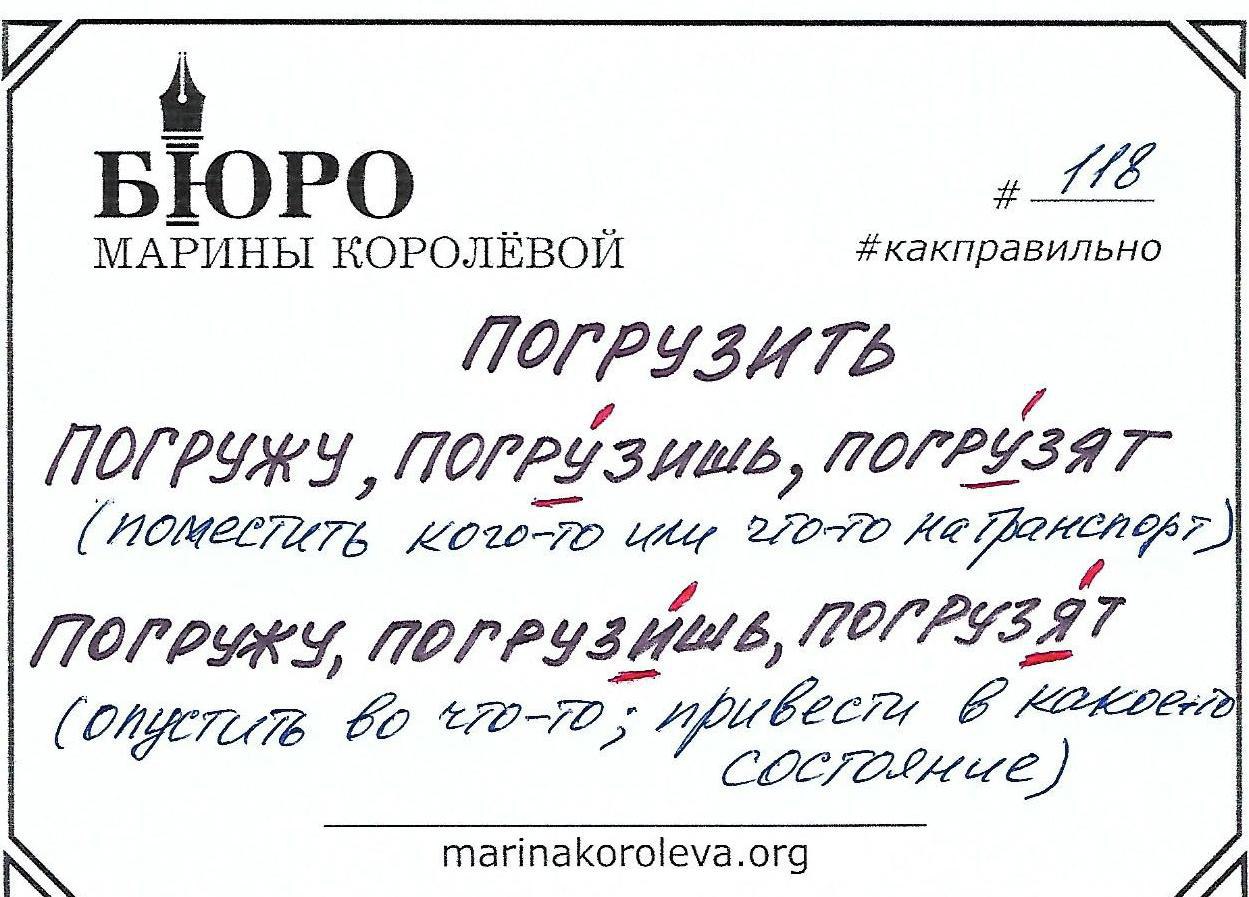 БЮРО
МАРИНЫ КОРОЛЁВОЙ
# 118
#какправильно
ПОГРУЗИТЬ
ПОГРУЖУ, ПОГРУ́ЗИШЬ, ПОГРУ́ЗЯТ
(поместить кого-то или что-то на транспорт)
ПОГРУЖУ, ПОГРУЗИ́ШЬ, ПОГРУЗЯ́Т
(опустить во что-то; привести в какое-то
состояние)
marinakoroleva.org